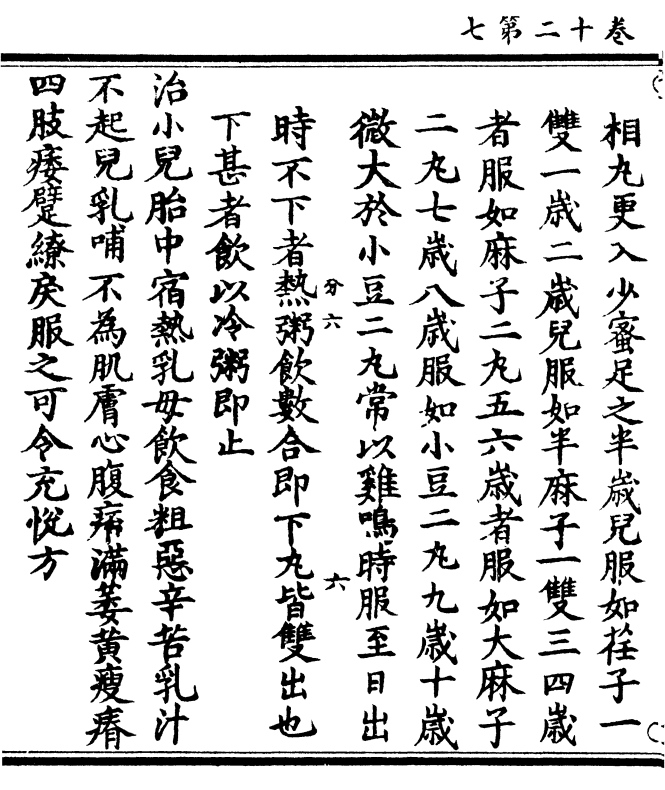 卷十二第七
相丸更入少蜜足之半歳兒服如荏子一
雙一歳二歳兒服如半麻子一雙三四歳
者服如麻子二丸五六歳者服如大麻子
二丸七歳八歳服如小豆二丸九歳十歳
微大於小豆二丸常以雞鳴時服至日出
時不下者熱粥飲數合即下丸皆雙出也
分六
六
下甚者飲以冷粥即止
治小兒胎中宿熱乳母飲食粗惡辛苦乳汁
不起兒乳哺不為肌膚心腹痞滿萎黃瘦瘠
四肢痿躄繚戾服之可令充悅方